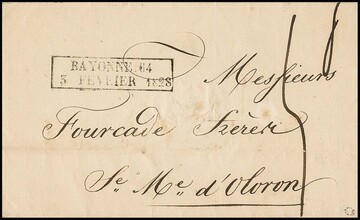 BAYONNE. 64
3 FEVRIER 1828
Messieurs
Fourcade Frères
Ste. Me. d'Oloron